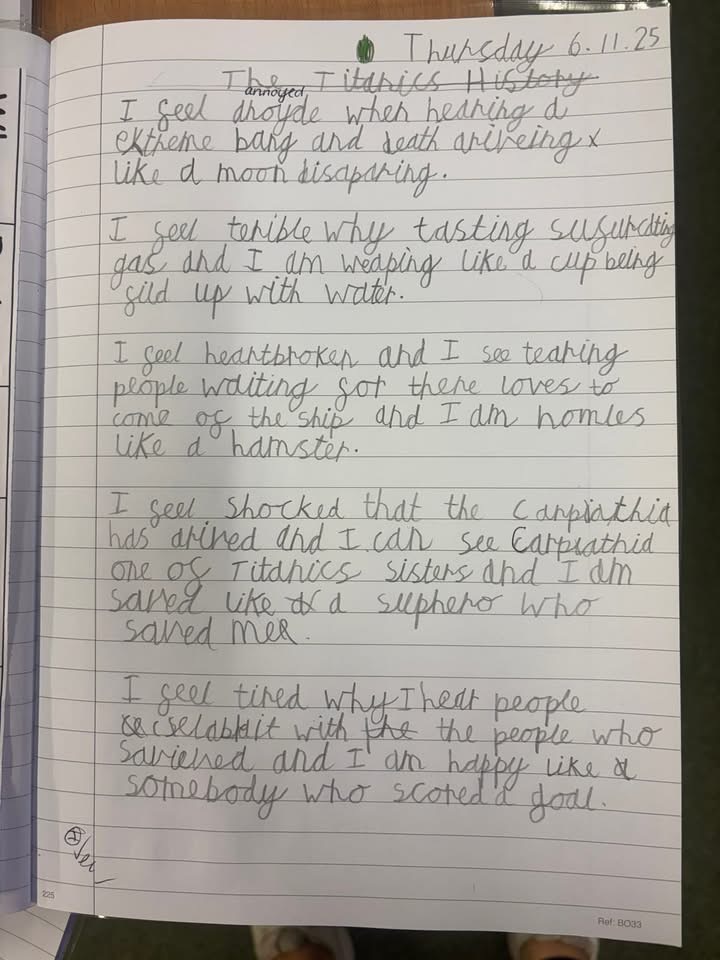 Thursday 6.11.25
The Titanics History
annoyed
I feel anoyde when hearing a
extreme bang and death ariveing x
like a moon disaparing.
I feel terible why tasting sufurcating
gas and I am weaping like a cup being
fild up with water.
I feel heartbroken and I see tearing
people waiting for there loves to
come of the ship and I am homles
like a hamster.
I feel shocked that the Carpiathia
has arived and I can see Carpiathia
one of Titanics sisters and I am
saved like a suphero who
saved mee.
I feel tired why I hear people
with the the people who
savieved and I am happy like a
somebody who scored a goal.
225
Ref: BO33